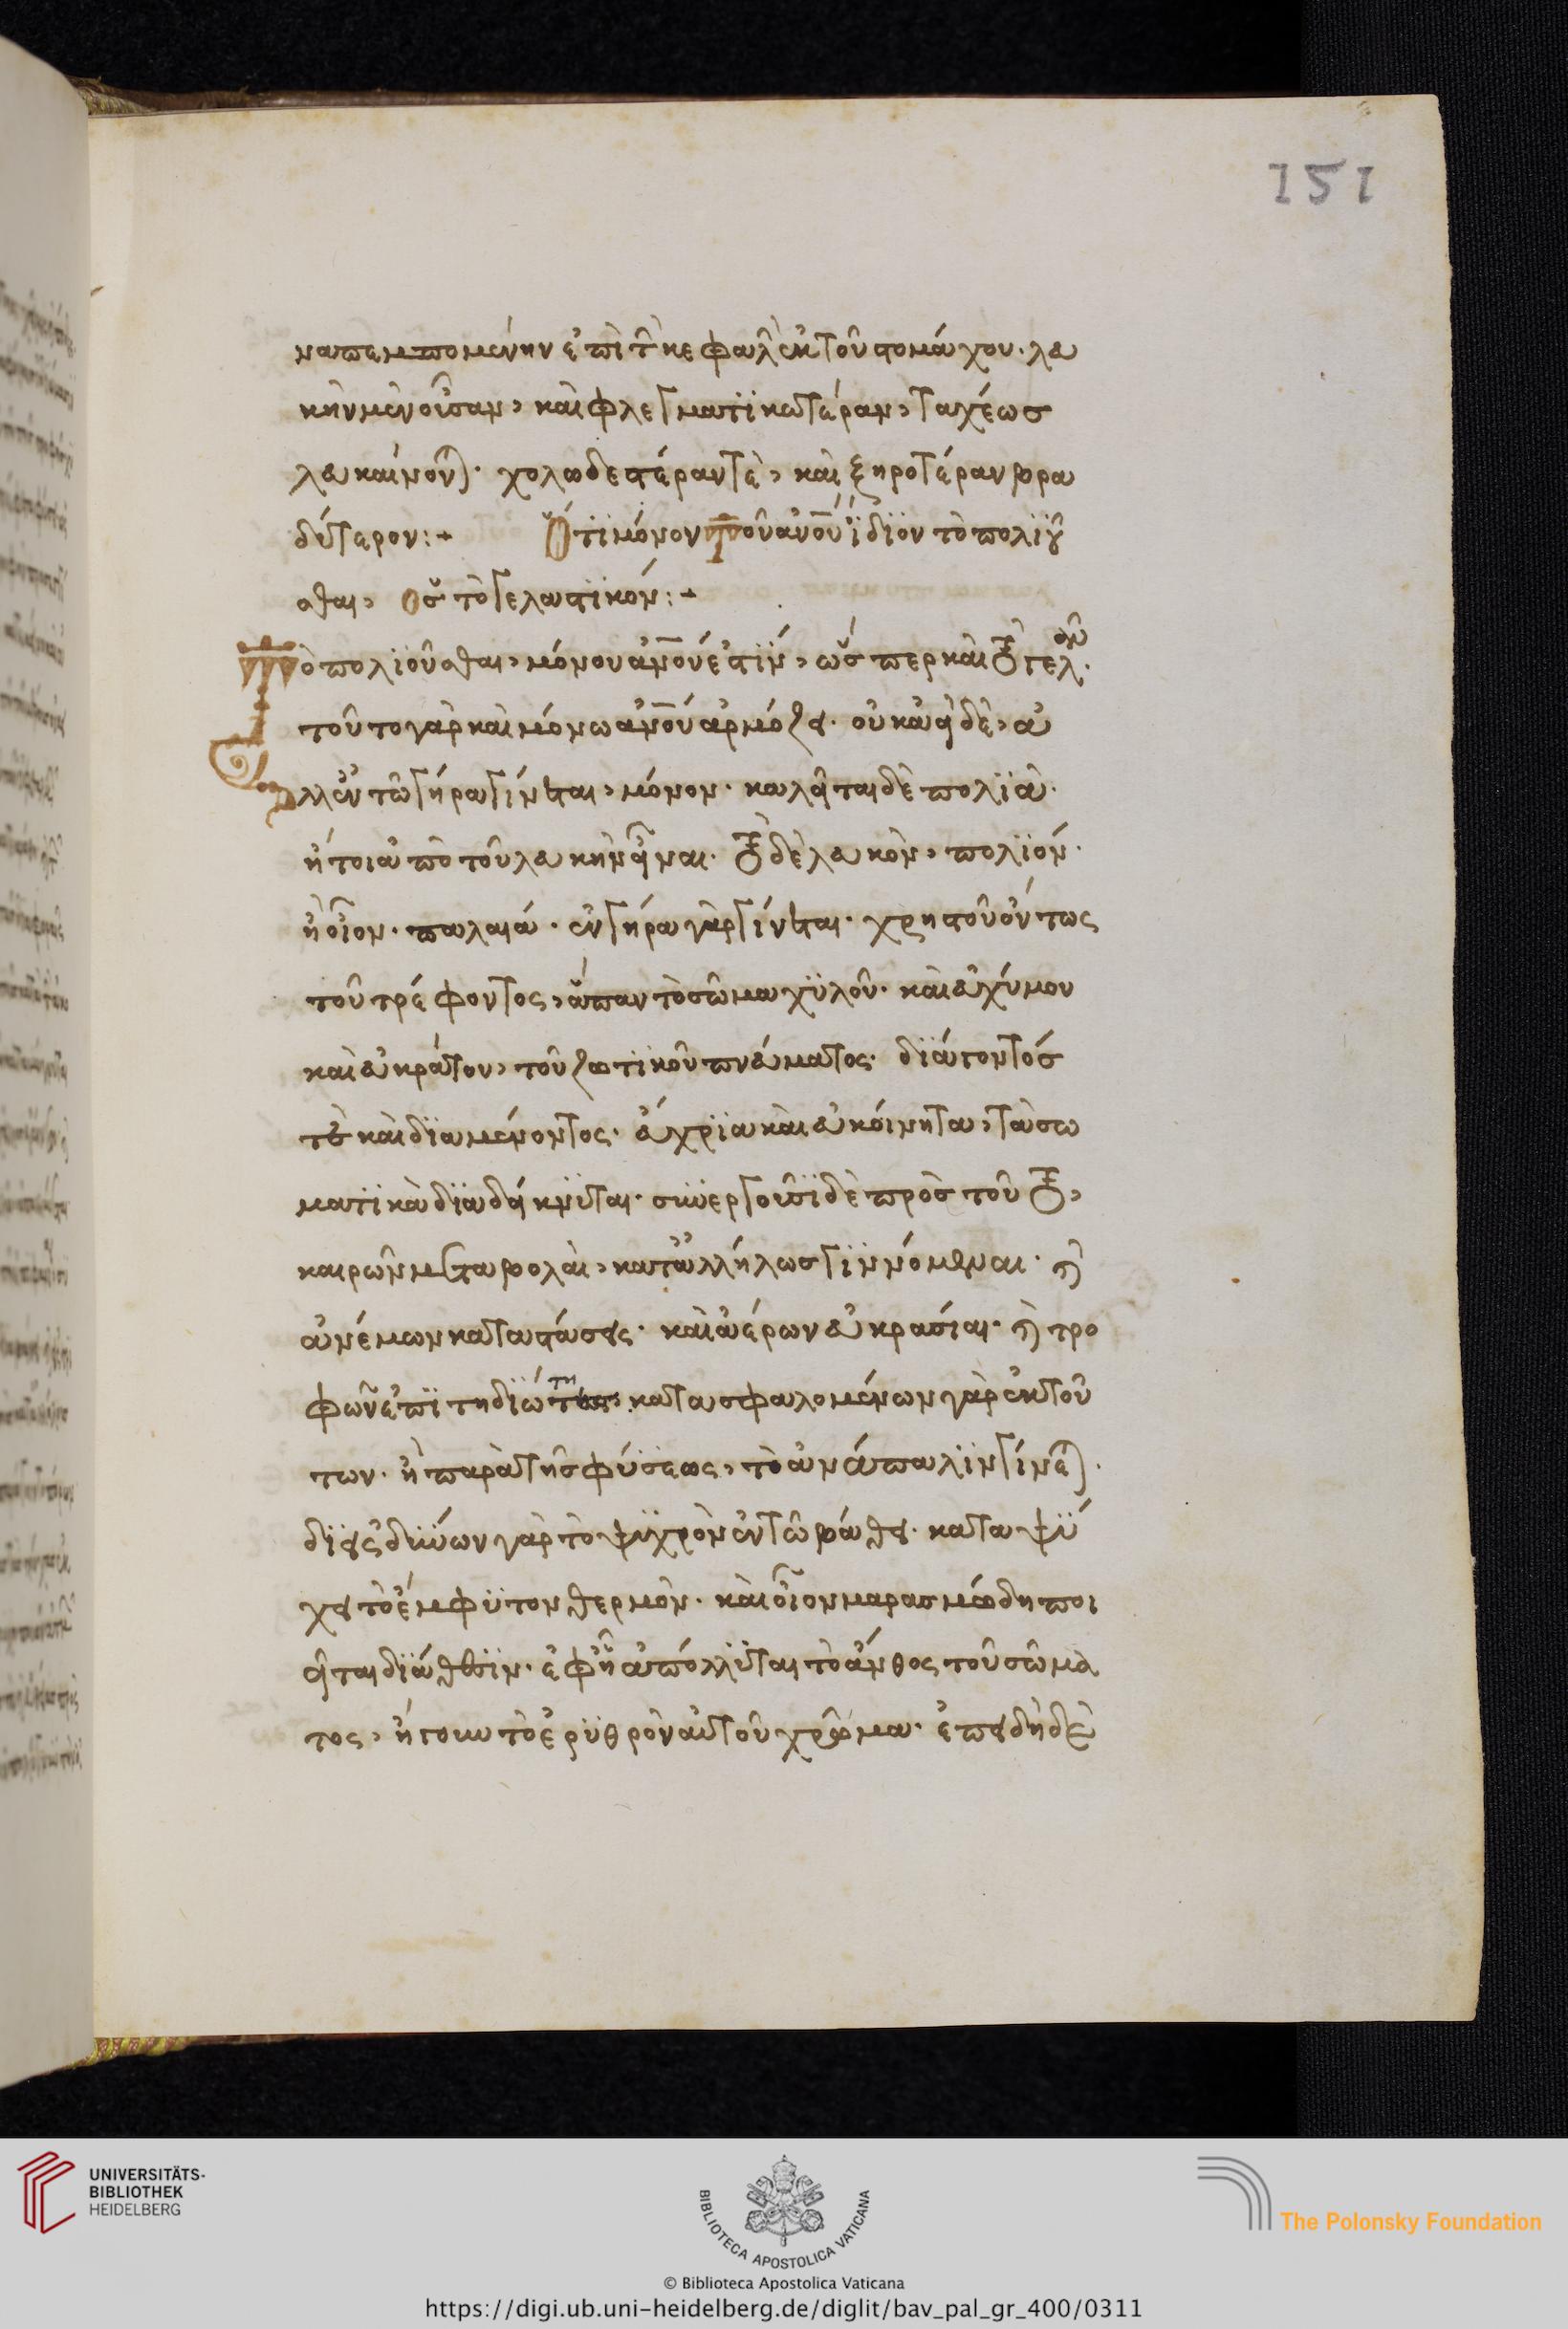 151
ναπεμπομένην ἐπὶ τ̂ κεφαλ̀ ἐκ τοῦ στομάχου· λευ
κὴν μὲν οὖσαν, καὶ φλεγματϊκωτέραν, ταχέως
λευκαίνον· χολωδεστέραν τὲ, καὶ ξηροτέραν βρα
δύτερον:+ Ὅτϊ μόνον τοῦ ἀνοῦ ἴδϊον τὸ πολϊοῦ
σθαι, ὡς τὸ γελαστϊκόν:+
Τὸ πολϊοῦσθαι, μόνου ἀνοῦ ἐστϊν, ὥσπερ καὶ τὸ γελ.
τοῦτο γὰρ καὶ μόνω ἀνοῦ ἁρμόζει. οὐκ ἀεὶ δὲ, ἀ
λλ' ἐν τῶ γήρα γίνεται, μόνον. καλεῖται δὲ πολϊὰ.
ἤτοι ἀπὸ τοῦ λευκὴν εἶναι. τὸ δὲ λευκὸν, πολϊόν.
ἢ οἷον. παλαιά. ἐν γήρα γὰρ γίνεται. χρηστοῦ ὄντως
τοῦ τρέφοντος, ἅπαν τὸ σῶμα χϋλοῦ. καὶ εὐχύμου
καὶ εὐκράτου, τοῦ ζωτϊκοῦ πνεύματος. δϊάγοντός
τὲ καὶ δϊαμένοντος. εὔχρϊα καὶ εὐκίνητα, τὰ σω
ματϊκὰ δϊαδείκνϋται. συνεργοῦσϊ δὲ πρὸς τοῦτο,
καιρῶν μεταβολαὶ, καταλλήλως γϊννόμεναι. καὶ
ἀνέμων καταστάσεις. καὶ ἀέρων εὐκρασίαι. καὶ τρο
φῶν ἐπϊτηδϊώτη κατασφαλομένων γὰρ ἐκ τοῦ
των. ἢ παρὰ τῆς φύσεως, τὸ ἀνάπαλϊν γίνε.
δϊεισδύων γὰρ τὸ ψϋχρὸν ἐν τῶ βάθει. καταψϋ
χει τὸ ἔμφϋτον θερμὸν. καὶ οἷον μαρασμώδη ποι
εῖται δϊάθεσϊν. ἐφ' ἧ ἀπόλλϋται τὸ ἄνθος τοῦ σώμα
τος, ἤγουν τὸ ἐρϋθρὸν αὐτοῦ χρῶμα. ἐπειδὴ δὲ
UNIVERSITÄTS-
BIBLIOTHEK
HEIDELBERG
BIBLIOTECA APOSTOLICA VATICANA
The Polonsky Foundation
© Biblioteca Apostolica Vaticana
https://digi.ub.uni-heidelberg.de/diglit/bav_pal_gr_400/0311